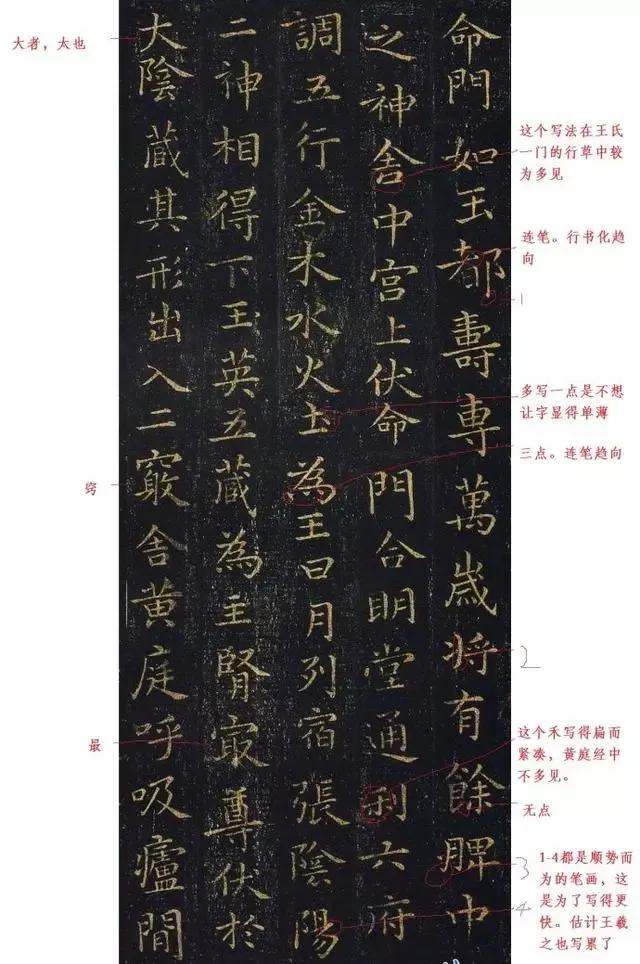 命門如玉都壽專萬歲将有餘脾中
之神舍中宫上伏命門合明堂通利六府
調五行金木水火土為王日月列宿張陰陽
二神相得下玉英五藏為主腎冣尊伏於
大陰蔵其形出入二竅舍黄庭呼吸廬間
大者，太也
窍
最
这个写法在王氏
一门的行草中较
为多见
连笔。行书化趋
向
1
多写一点是不想
让字显得单薄
三点。连笔趋向
2
这个禾写得扁而
紧凑，黄庭经中
不多见。
无点
3
4
1-4都是顺势而
为的笔画，这
是为了写得更
快。估计王羲
之也写累了